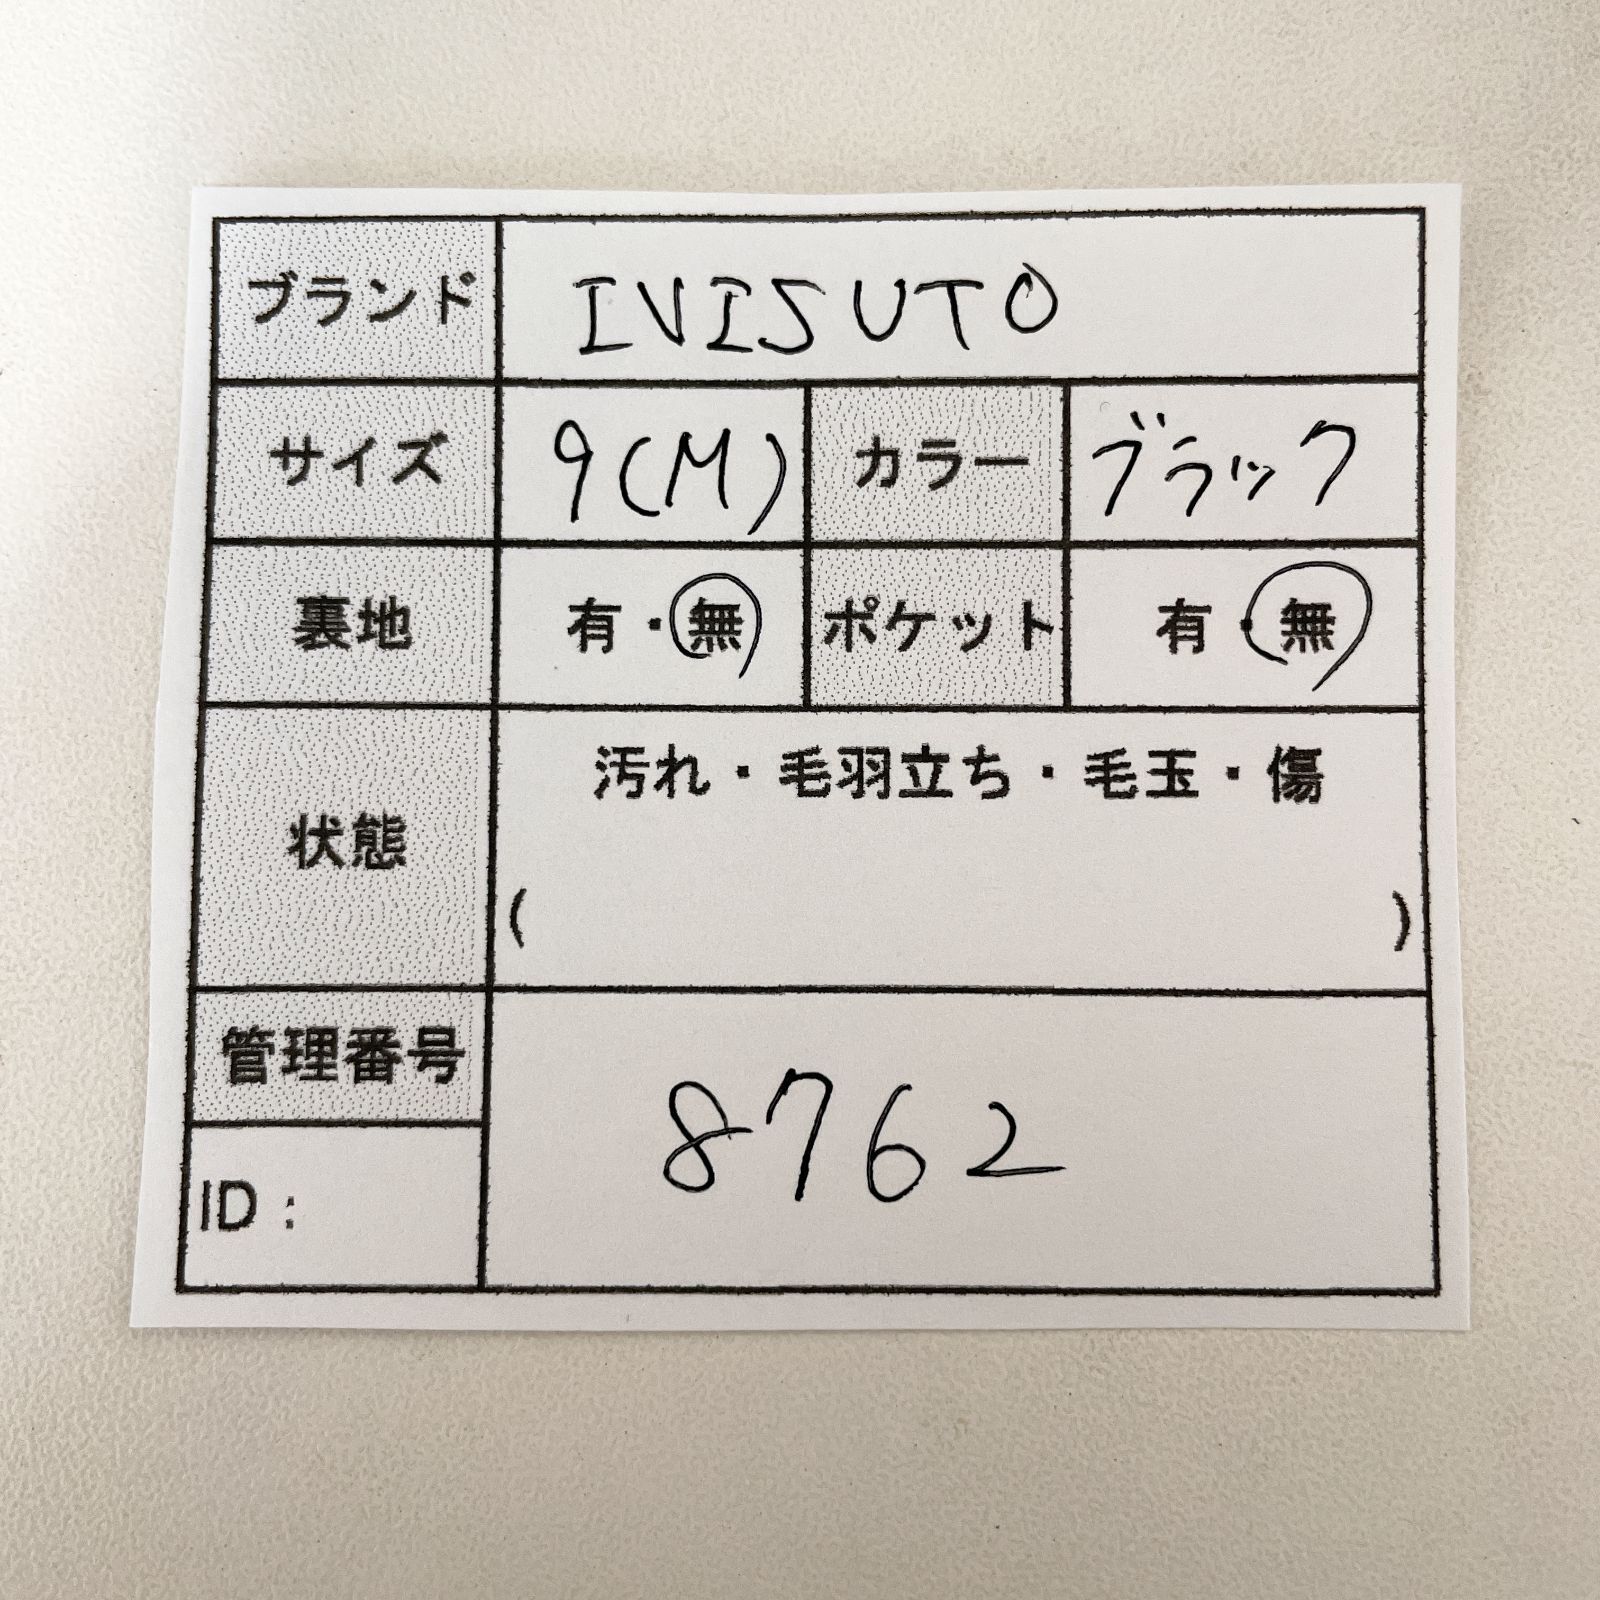 ブランド IVISUTO
サイズ 9(M) カラー ブラック
裏地 有・無 ポケット 有・無
汚れ・毛羽立ち・毛玉・傷
状態
( )
管理番号
8762
ID: